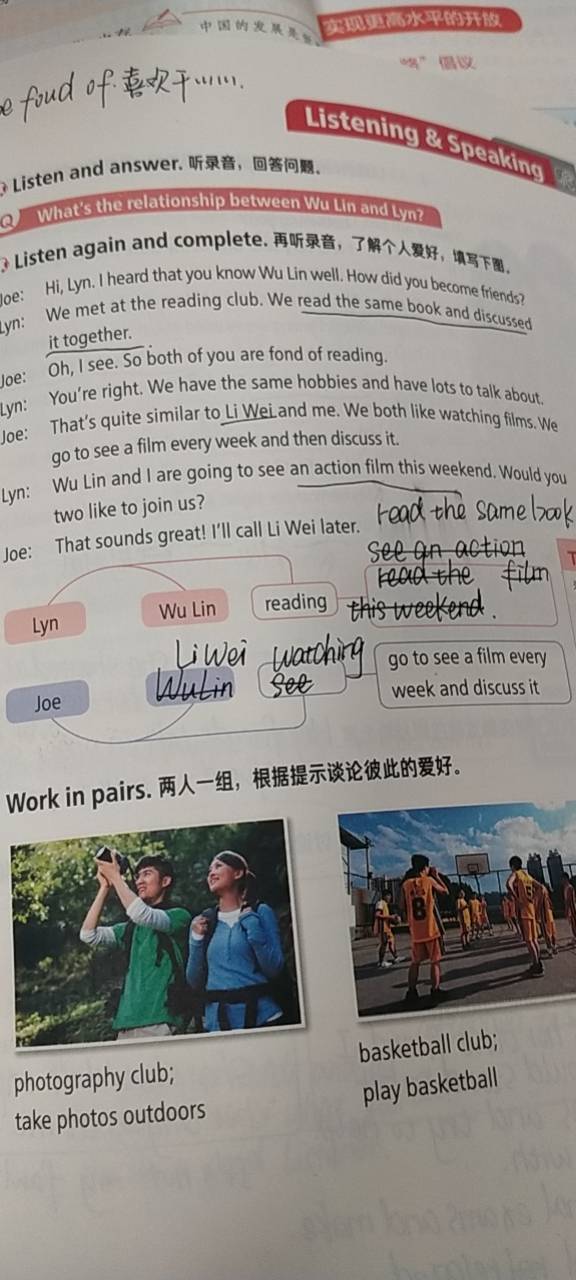 中国的发展是
实现更高水平的开放
倡议
fond of 喜欢干……
Listening & Speaking
Listen and answer. 听录音，回答问题。
Q What's the relationship between Wu Lin and Lyn?
Listen again and complete. 再听录音，了解个人爱好，填写下图。
Joe: Hi, Lyn. I heard that you know Wu Lin well. How did you become friends?
Lyn: We met at the reading club. We read the same book and discussed
it together.
Joe: Oh, I see. So both of you are fond of reading.
Lyn: You're right. We have the same hobbies and have lots to talk about.
Joe: That's quite similar to Li Wei and me. We both like watching films. We
go to see a film every week and then discuss it.
Lyn: Wu Lin and I are going to see an action film this weekend. Would you
two like to join us?
Joe: That sounds great! I'll call Li Wei later.
read the same book
see an action
read the film
this weekend.
Lyn
Wu Lin
reading
Li Wei
watching
Joe
WuLin
see
go to see a film every
week and discuss it
Work in pairs. 两人一组，根据提示谈论彼此的爱好。
8
photography club;
take photos outdoors
basketball club;
play basketball